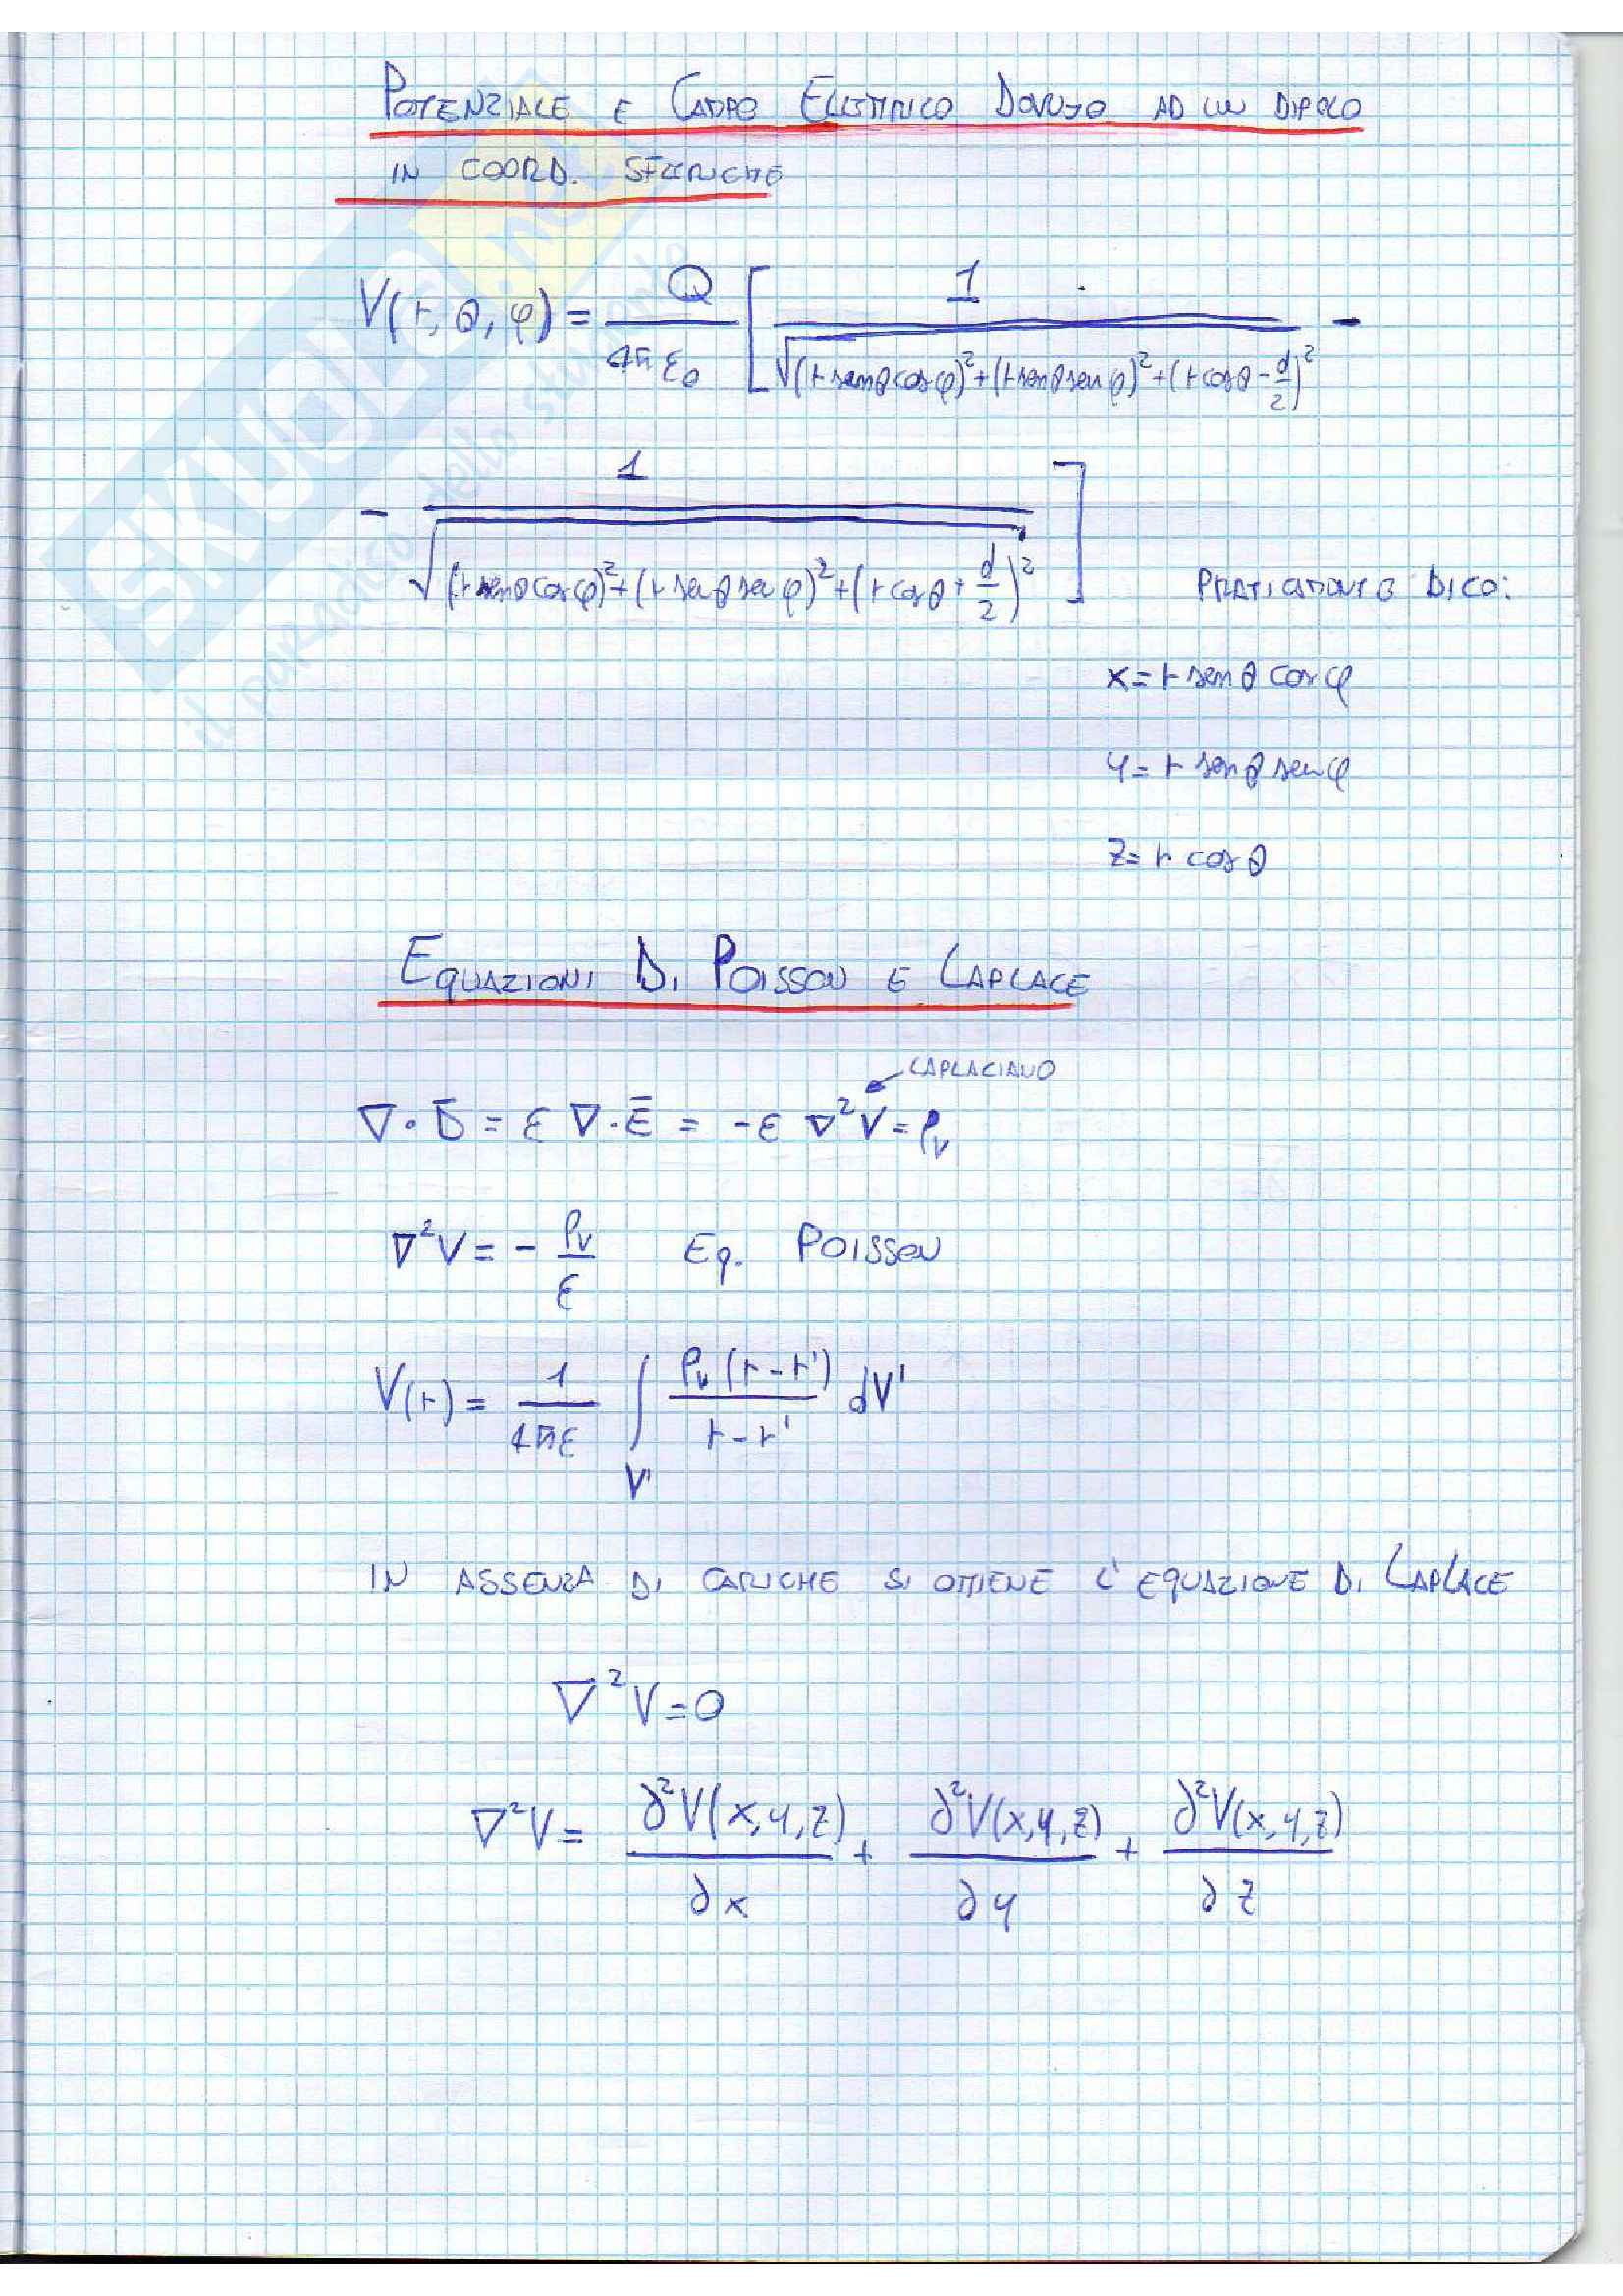 POTENZIALE E CAMPO ELETTRICO DOVUTO AD UN DIPOLO
IN COORD. SFERICHE
V(r, θ, φ) = Q / 4π ε₀ [ 1 / √((r senθ cosφ)² + (r senθ sen φ)² + (r cosθ - d/2)²) -
- 1 / √((r senθ cosφ)² + (r senθ sen φ)² + (r cosθ + d/2)²) ]
PRATICAMENTE DICO:
x = r senθ cosφ
y = r senθ senφ
z = r cosθ
EQUAZIONI DI POISSON E LAPLACE
LAPLACIANO
∇ · D̄ = ε ∇ · Ē = -ε ∇²V = ρᵥ
∇²V = - ρᵥ / ε Eq. POISSON
V(r) = 1 / 4πε ∫V' ρᵥ (r - r') / r - r' dV'
IN ASSENZA DI CARICHE SI OTTIENE L'EQUAZIONE DI LAPLACE
∇²V = 0
∇²V = ∂²V(x,y,z) / ∂x + ∂²V(x,y,z) / ∂y + ∂²V(x,y,z) / ∂z
SKUOLA.net
il paradiso dello studente